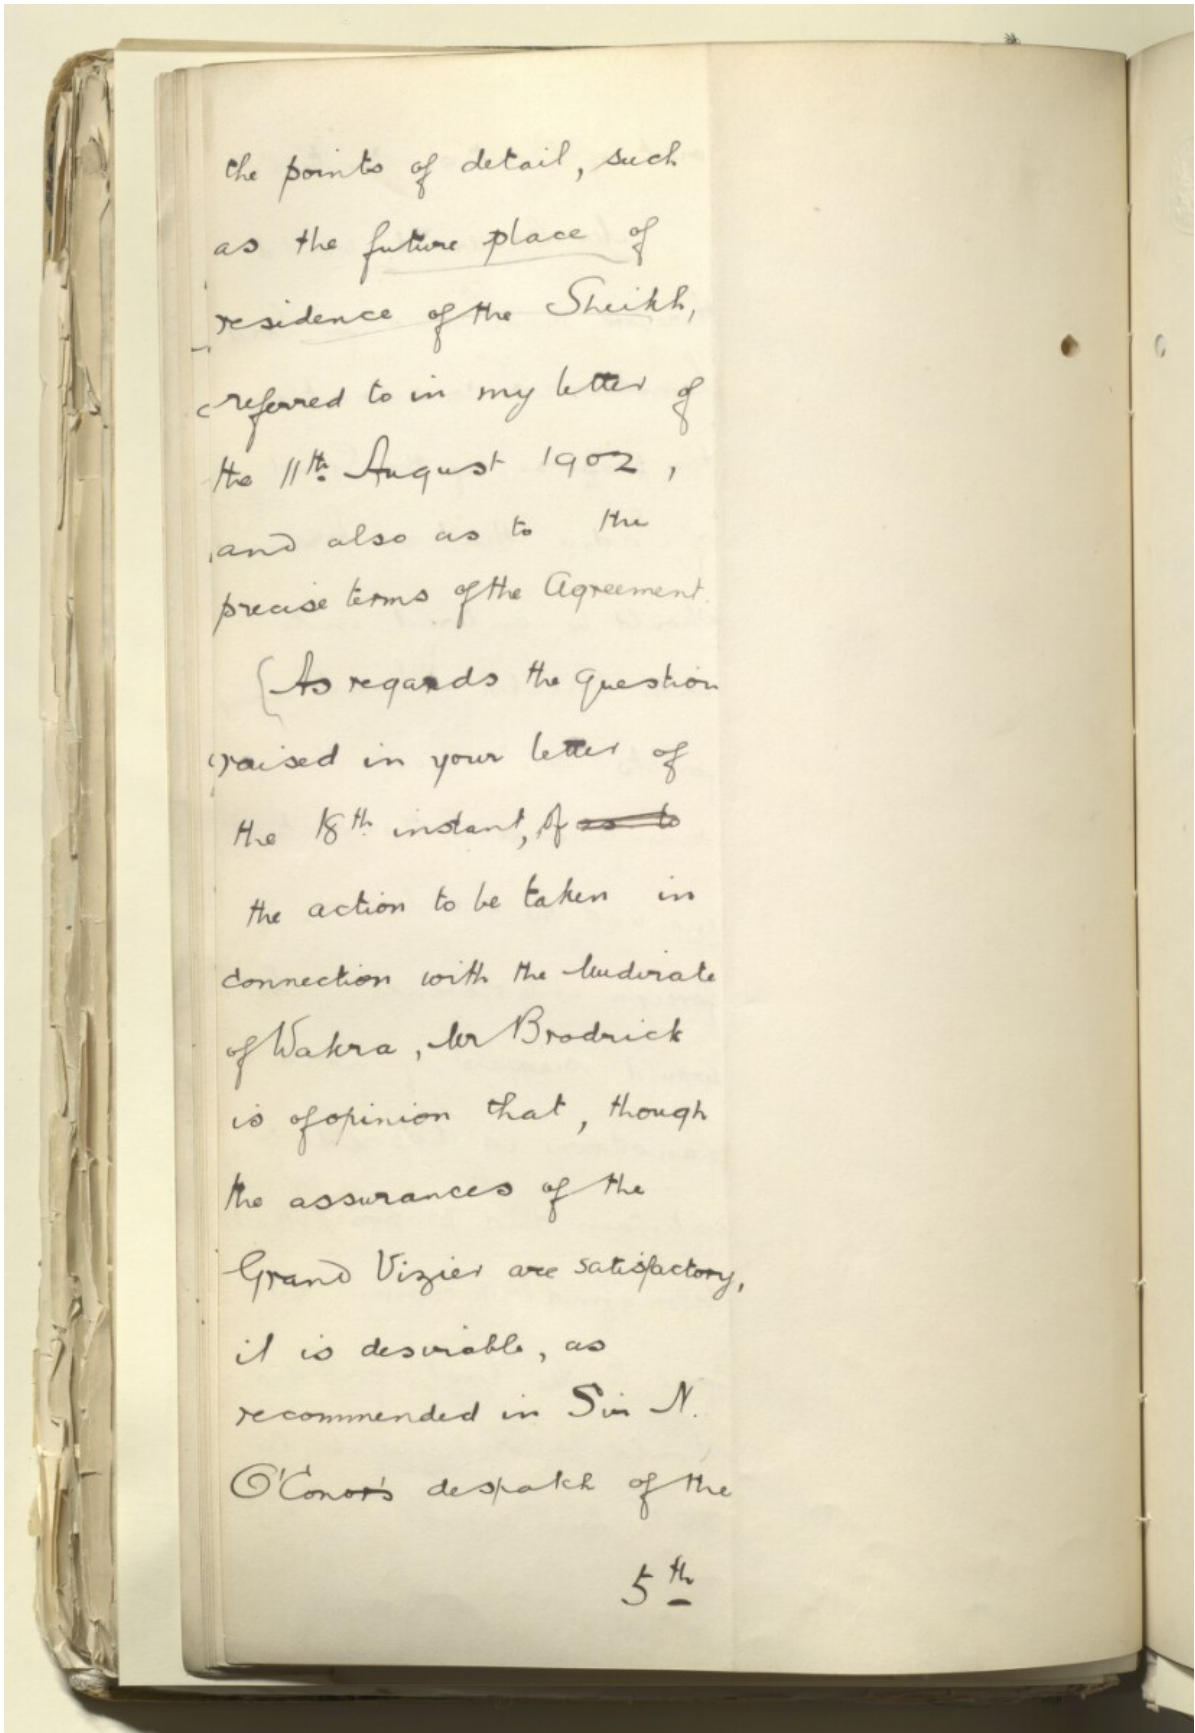 the points of detail, such
as the future place of
residence of the Sheikh,
referred to in my letter of
the 11th. August 1902,
and also as to the
precise terms of the Agreement.
(As regards the question
raised in your letter of
the 18th. instant, of as to
the action to be taken in
connection with the Mudirate
of Wakra, Mr Brodrick
is of opinion that, though
the assurances of the
Grand Vizier are satisfactory,
it is desirable, as
recommended in Sir N.
O'Conor's despatch of the
5th